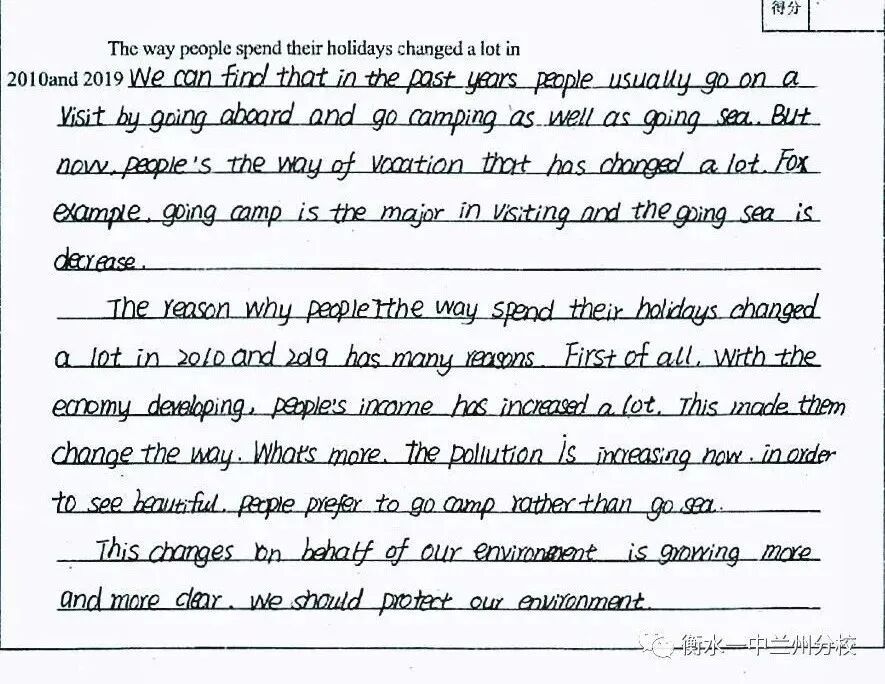 得分
The way people spend their holidays changed a lot in
2010and 2019 We can find that in the past years people usually go on a
visit by going aboard and go camping as well as going sea. But
now, people's the way of vocation that has changed a lot. Fox
example, going camp is the major in visiting and the going sea is
decrease.
The reason why people the way spend their holidays changed
a lot in 2010 and 2019 has many reasons. First of all, With the
ecnomy developing, people's income has increased a lot. This made them
change the way. What's more, The pollution is increasing now. in order
to see beautiful, people prefer to go camp rather than go sea.
This changes on behalf of our environment is growing more
and more clear. we should protect our environment.
衡水一中兰州分校